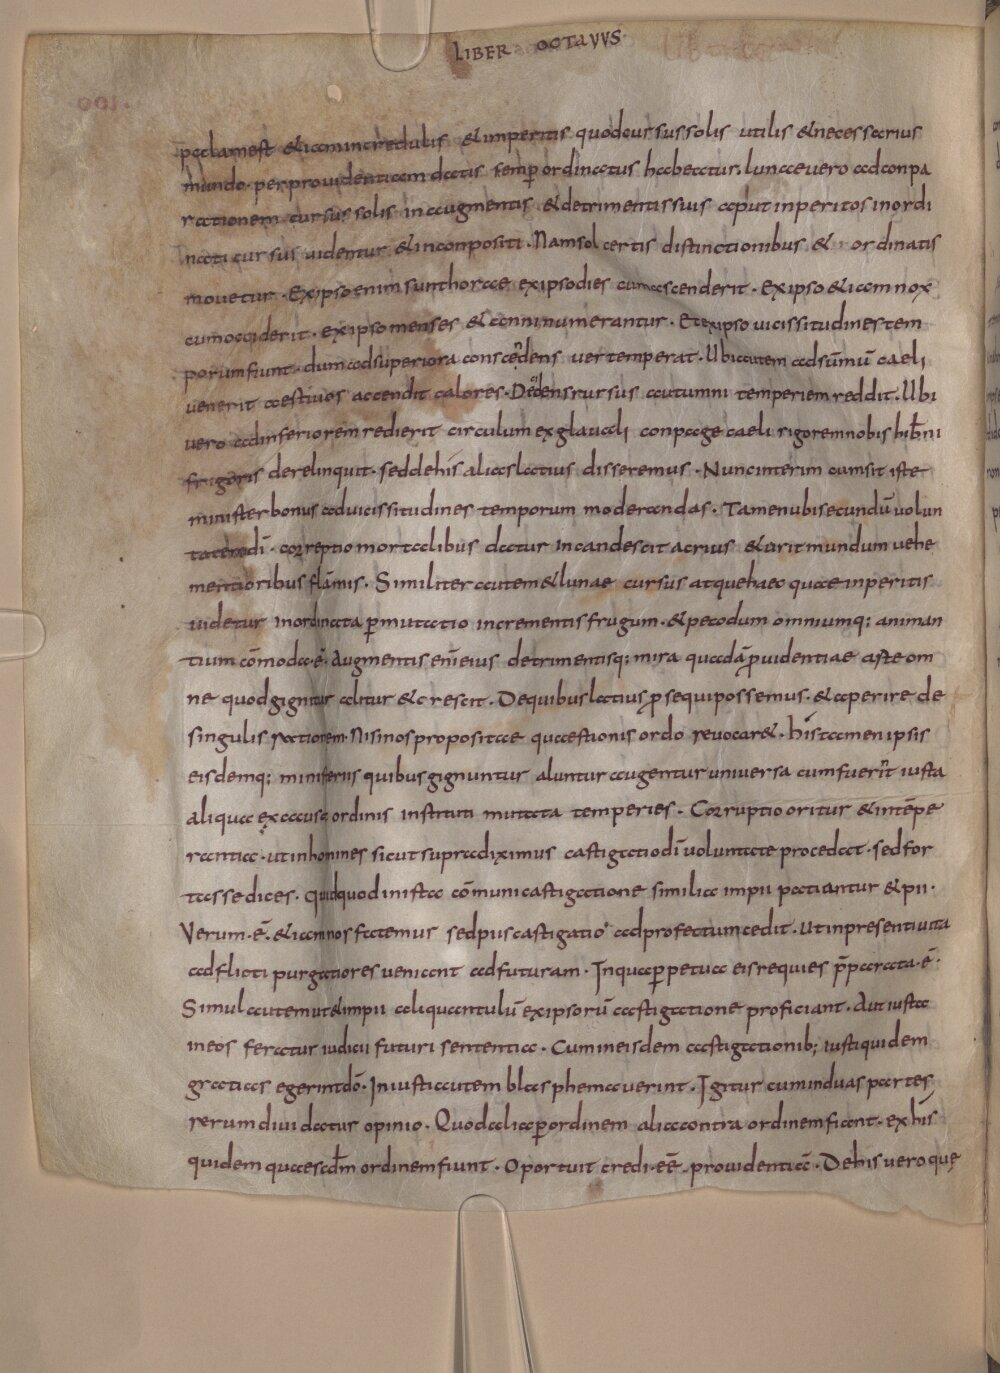 LIBER OCTAVVS
.100.
palamest &iamincredulis &imperitis quodcursussolis utilis &necessarius
mundo· perprouidentiam datis semp ordinatus habeatur. lunaeuero adconpa
rationem cursussolis inaugmentis &detrimentissuis aputinperitos inordi
nati cursus uidentur &inconpositi· Namsol certis distinctionibus & ordinatis
mouetur· Exipsoenim sunthorae exipsodies cumascenderit· Exipso &iamnox
cumocciderit· exipso menses &anni numerantur· Etexipso uicissitudinestem
porumfiunt· dumadsuperiora conscendens uertemperat· Ubiautem adsūmū caeli
uenerit aestiuos accendit calores· Dedensrursus autumni temperiem reddit. Ubi
uero adinferiorem redierit circulum exglaciali conpage caeli rigoremnobis hiƀni
frigoris derelinquit· seddehis aliaslatius disseremus· Nuncinterim cumsit iste
ministerbonus aduicissitudines temporum moderandas· Tamenubisecundū uolun
tatemdī· correptio mortalibus datur Incandescit acrius &urit mundum uehe
mentioribus flāmis· Similiter autem &lunae cursus atquehaec quae inperitis
uidetur inordinata pmutatio incrementis frugum· &pecodum omniumq; animan
tium cōmoda·ē· Augmentis enīeius detrimentisq; mira quadā puidentiae aste om
ne quodgignitur alitur &crescit· Dequibuslatius psequipossemus· &aperire de
singulis rationem· Nisinospropositae quaestionis ordo reuocar&· histamen ipsis
eisdemq; minsteriis quibusgignuntur aluntur augentur uniuersa cumfuerit iusta
aliqua excausa ordinis instituti mutata temperies· Corruptio oritur &intēpe
rantia· utinhomines sicutsupradiximus castigatiodī uoluntate procedat· sedfor
tassedices· Quidquod inista cōmunicastigatione similia impii patiantur &pii·
Verum·ē· &iamnosfatemus sedpiiscastigatio adprofectumcedit· Utinpresentiuita
adflicti purgatiores ueniant adfuturam· Inquaperpetua eisrequies pparata·ē·
Simul autemut&impii aliquantulū exipsorū castigatione proficiant· Aut iusta
ineos feratur iudicii futuri sententia· Cumineisdem castigationib; iustiquidem
gratias egerintdō· Iniustiautem blasphemauerint· Igitur cuminduas partes
rerumdiuidatur opinio· Quodaliapordinem aliacontra ordinemfiant· exhis
quidem quaescdm ordinemfiunt· Oportuit credi·eē· prouidentiā· Dehisuero quę